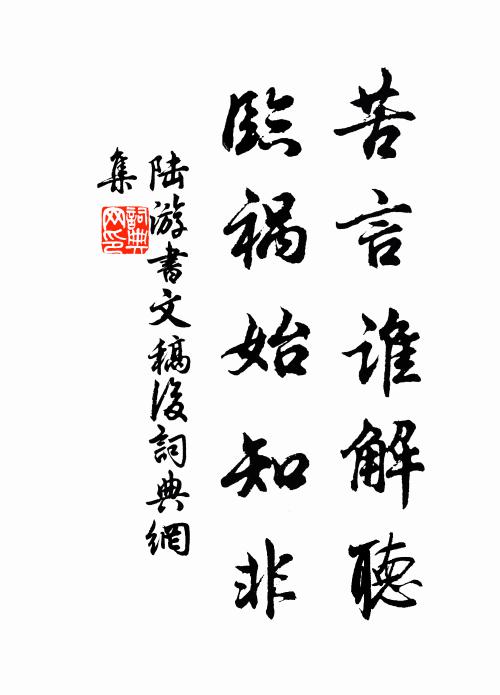 苦言谁解聴
臨禍始知非
陸游書文稿後詞典網
集
詞典网印